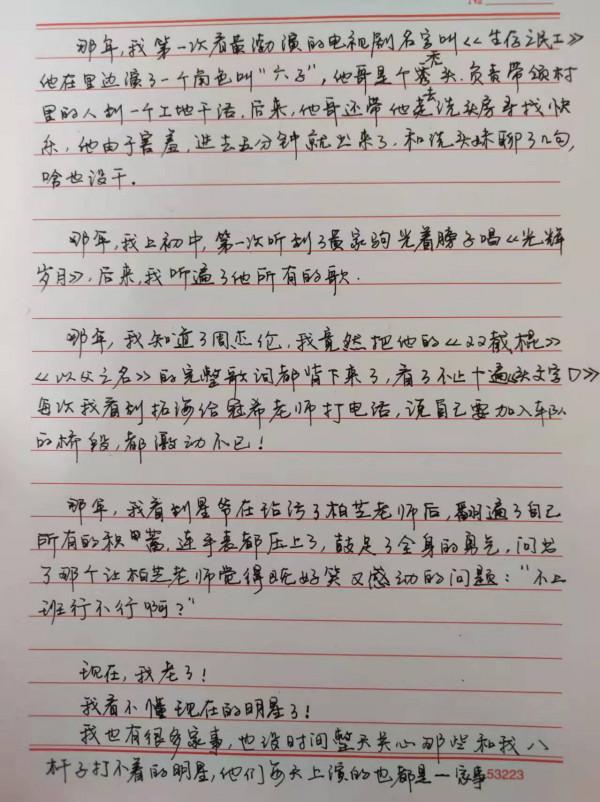 No
那年,我第一次看黄渤演的电视剧名字叫《生存之民工》
他在里边演了一个角色叫“六子”,他哥是个秃头.负责带领村
里的人到一个工地干活.后来,他哥还带他去洗头房寻找快
乐,他由于害羞,进去五分钟就出来了,和洗头妹聊了几句,
啥也没干.
那年,我上初中,第一次听到了黄家驹光着膀子唱《光辉
岁月》.后来,我听遍了他所有的歌.
那年,我知道了周杰伦,我竟然把他的《双截棍》
《以父之名》的完整歌词都背下来了,看了不止十遍《头文字D》
每次我看到拓海给冠希老师打电话,说自己要加入车队
的桥段,都激动不已!
那年,我看到星爷在玷污了柏芝老师后,翻遍了自己
所有的积蓄,连手表都压上了,鼓足了全身的勇气,问出
了那个让柏芝老师觉得既好笑又感动的问题:“不上
班行不行啊?”
现在,我老了!
我看不懂现在的明星了!
我也有很多家事,也没时间整天关心那些和我八
杆子打不着的明星,他们每天上演的也都是一家事
53223